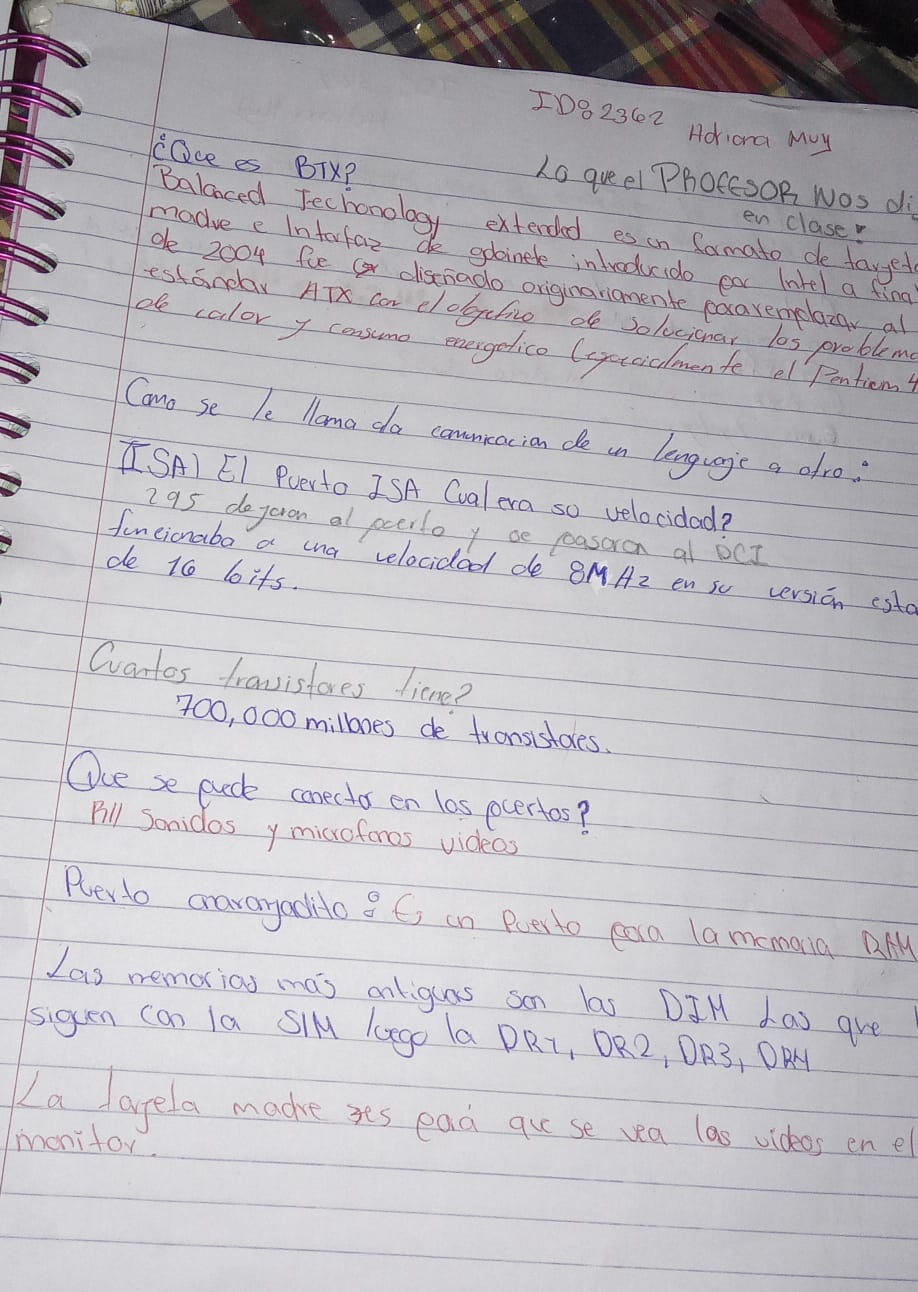 ID: 2362 Adriana Muy
¿Que es BTX?
Lo que el PROFESOR Nos di
en clase:
Balanced Techonology extended es un Formato de tarjeta
madre e Interfaz de gabinete introducido por Intel a final
de 2004 fue diseñado originariamente para remplazar al
estándar ATX con el objetivo de solucionar los problema
de calor y consumo energetico (especialmente el Pentium 4
Como se le llama da comunicacion de un lenguaje a otro:
ISA) El Puerto ISA Cual era su velocidad?
295 dejaron al puerto y se pasaron al PCI
funcionaba a una velocidad de 8MHz en su versión esta
de 16 bits.
Cuantos transistores tiene?
700,000 millones de transistores.
Que se puede conectar en los puertos?
Bill Sonidos y microfonos videos
Puerto anaranjadito: Es un Puerto para la memoria RAM
Las memorias más antiguas son las DIM Las que
siguen con la SIM luego la DR1, DR2, DR3, DR4
La Tarjeta madre es para que se vea las videos en el
monitor.